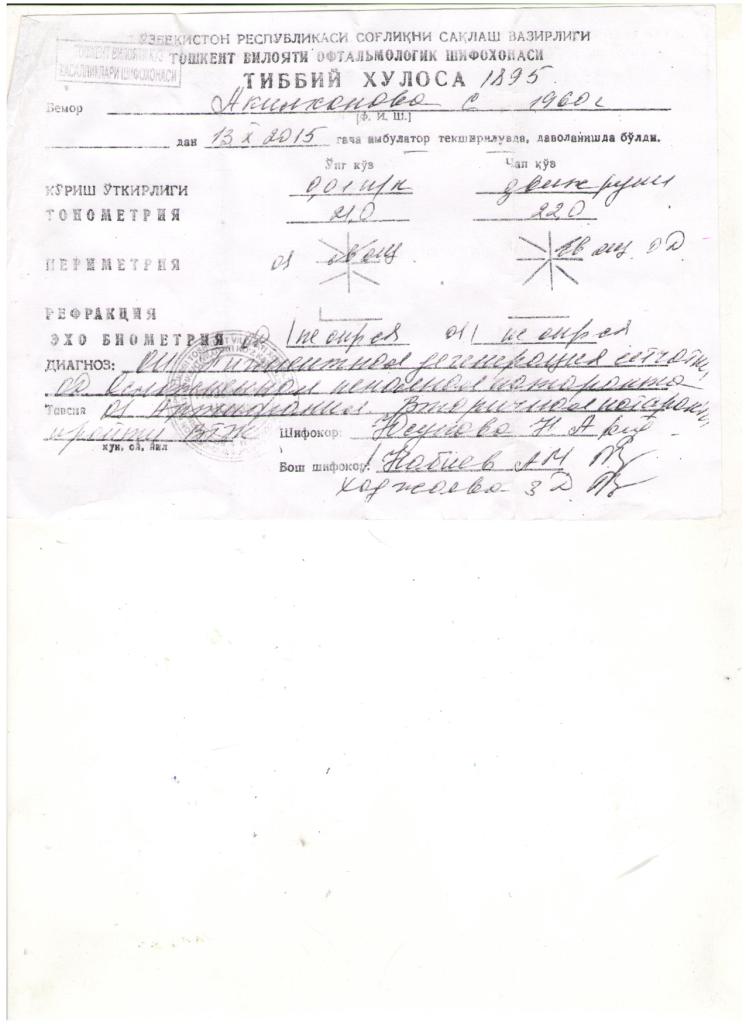 ЎЗБЕКИСТОН РЕСПУБЛИКАСИ СОҒЛИҚНИ САҚЛАШ ВАЗИРЛИГИ
ТОШКЕНТ ВИЛОЯТИ КЎЗ
КАСАЛЛИКЛАРИ ШИФОХОНАСИ
ТОШКЕНТ ВИЛОЯТИ ОФТАЛЬМОЛОГИК ШИФОХОНАСИ
ТИББИЙ ХУЛОСА 1895.
Бемор Акилханова С 1960г
[Ф. И. Ш.]
дан 13 X 2015 гача амбулатор текширилувда, даволанишда бўлди.
Ўнг кўз Чап кўз
КЎРИШ ЎТКИРЛИГИ 0,01 н/к движ руки
ТОНОМЕТРИЯ 21,0 22,0
ПЕРИМЕТРИЯ
РЕФРАКЦИЯ
ЭХО БИОМЕТРИЯ не опр-ся не опр-ся
ДИАГНОЗ: OU Пигментная дегенерация сетчатки,
OD Осложненная неполная катаракта
Тавсия OS Артифакия. Вторичная катаракта,
пройти ВТЭК Шифокор: Юсупова Н А
кун, ой, йил
Бош шифокор: Набиев АМ
Ходжаева З Д